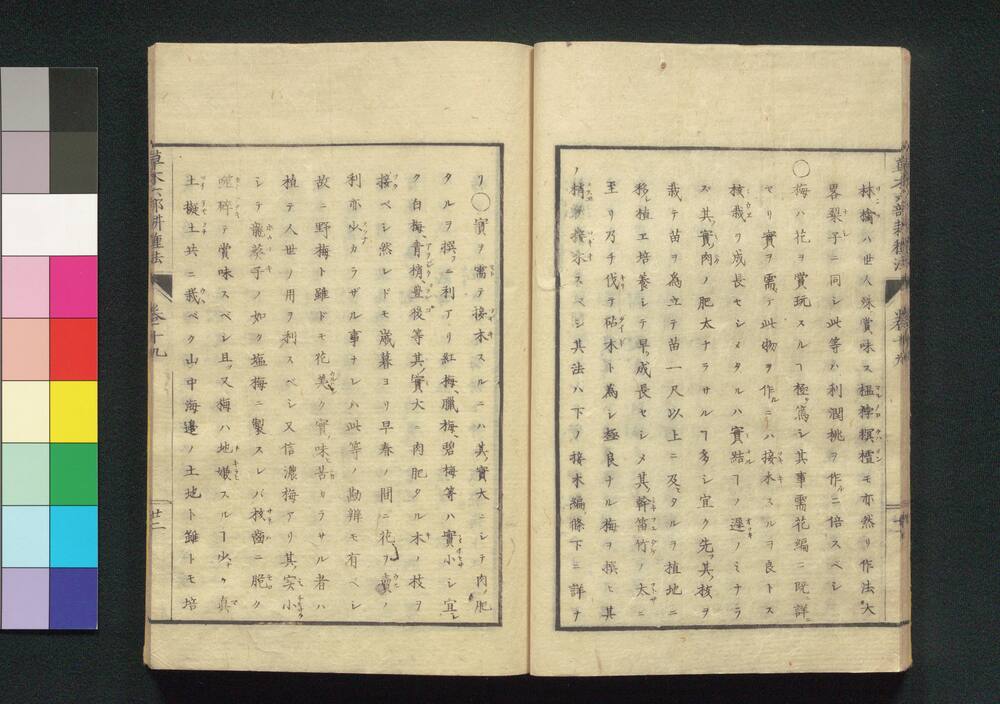 林檎ハ世人殊賞味ス榲桲榠樝モ亦然リ作法大
畧梨子ニ同シ此等ハ利潤桃ヲ作ルニ倍スベシ
○梅ハ花ヲ賞玩スルヿ極テ篤シ其事需花編ニ既ニ詳
セリ實ヲ需テ此物ヲ作ルニハ接木スルヲ良トス
核栽ヲ成長セシメタルハ實結ヿノ遲ノミナラ
ズ其實肉ノ肥太ナラサルヿ多シ宜ク先其核ヲ
栽テ苗ヲ為立テ苗一尺以上ニ及タルヲ植地ニ
移シ植ヱ培養シテ早ク成長セシメ其幹笛竹ノ太ニ
至リ乃チ伐テ砧木ト為シ極良ナル梅ヲ撰ヒ其
ノ梢ヲ接木スベシ其法ハ下ノ接木編條下ニ詳ナ
リ○實ヲ需テ接木スルニハ其實大ニシテ肉ノ肥
タルヲ撰フニ利アリ紅梅、臘梅、碧梅等ハ實小シ宜
ク白梅、青梢、豊後等其實大ニ肉肥タル木ノ枝ヲ
接ベシ然レドモ歳暮ヨリ早春ノ間ニ花ヲ賣ノ
利亦少カラザル事ナレハ此等ノ勘辨モ有ベシ
故ニ野梅ト雖ドモ花美ク實味苦カラサル者ハ
植テ人世ノ用ヲ利スベシ又信濃梅アリ其実小
シテ龍葵子ノ如ク塩梅ニ製スレバ核齒ニ脆ク
噬碎テ賞味スベシ且又梅ハ地嫌スルヿ少ク真
土擬土共ニ栽ベク山中海邊ノ土地ト雖トモ培
草木六部耕種法
卷二十九
廿二